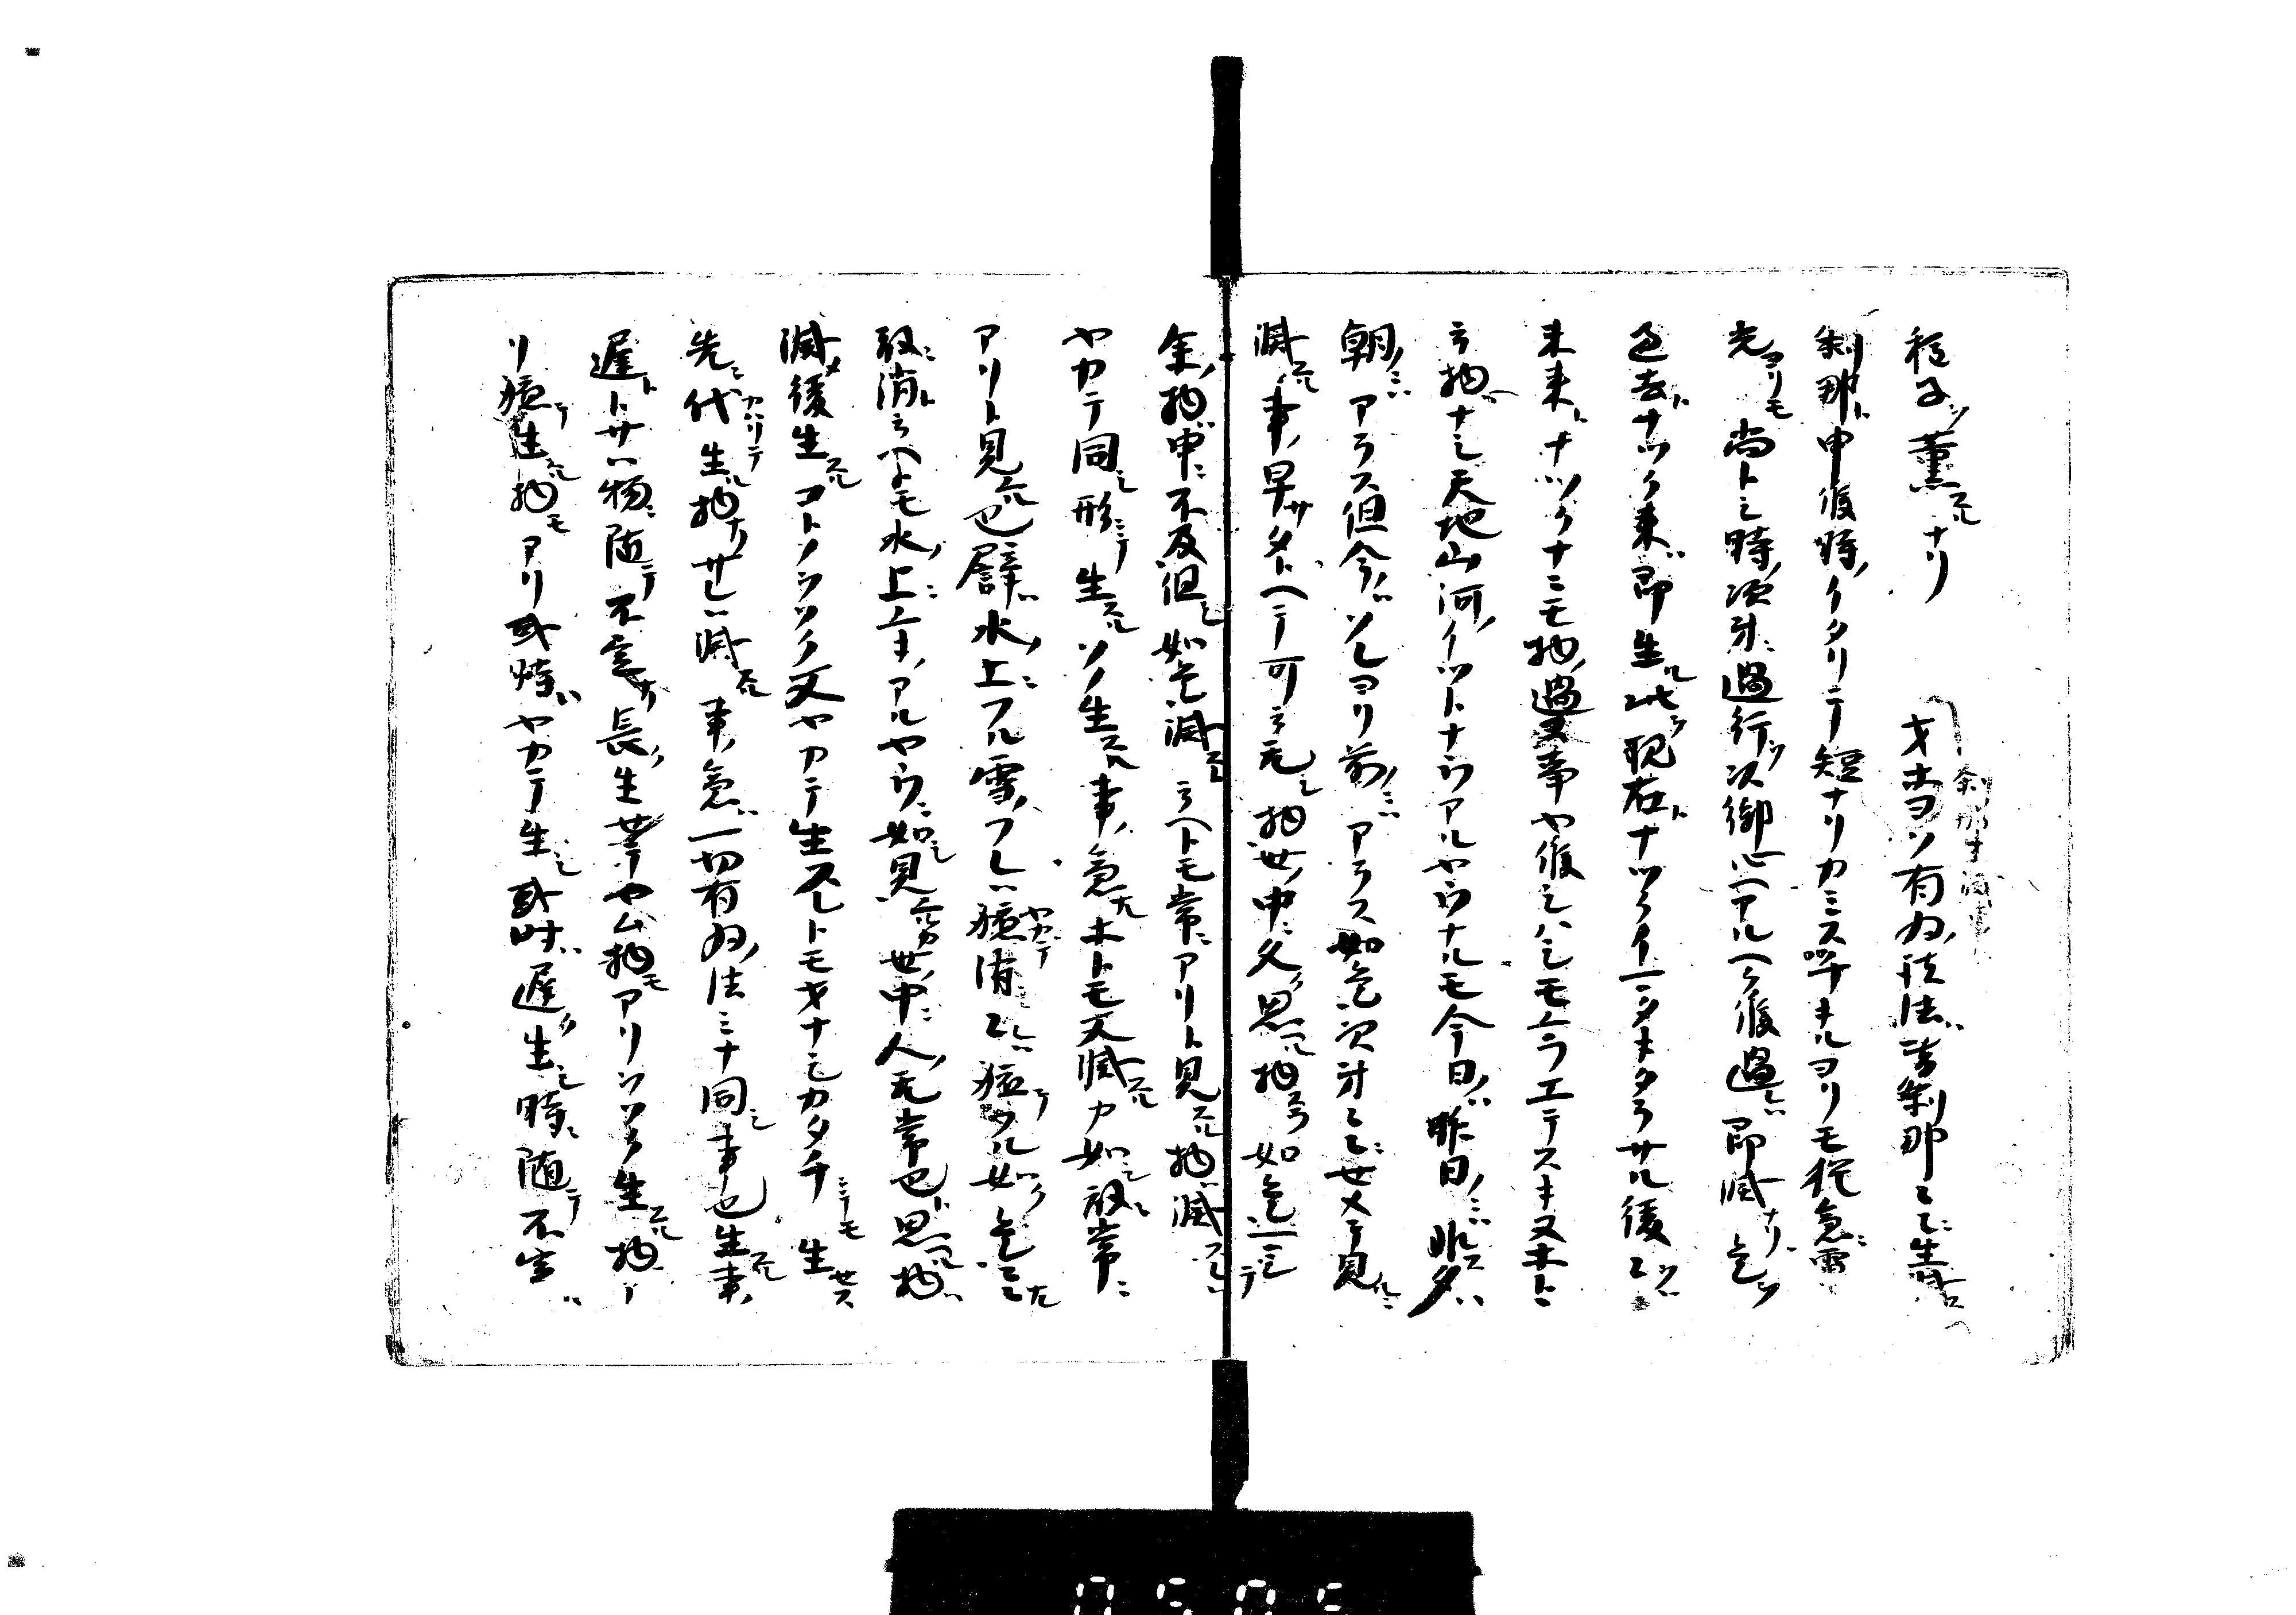 種子ヲ薫スルナリ
オホヨソ有為ノ諸法ハ皆刹那々々ニ生滅ス
刹那ト申候時ノイタリテ短ナリカミスチキルヨリモ猶急ニ電
光ヨリモ尚トシ時ノ次第ニ過行ヲ次御心ヘアルヘク候過レハ即滅ナリ是ヲ
過去トナツク来レハ即生ル此ヲ現在トナツクイマタキタラサル後々ヲハ
未来トナツクナニモ物ノ過事ヤ候シハシモムラエテスキ又ホトニ
云物ハナシ天地山河ノイツトナウアルヤウナルモ今日ノハ昨日ノニハ非ス夕ノハ
朝ノニハアラス但今ノハソレヨリ前ノニハアラス如是次第々々ニセメテ見レハ
滅スル事ノ早サタトヘテ可云无シ物世ノ中ニ久ク思ヘル物スラ如是マシテ
余ノ物ハ申ニ不及但シ如是滅スト云ヘトモ常ニアリト見ユル物ハ滅スレハ
ヤカテ同シ形ニテ生スルソノ生スル事ノ急ナルホトモ又滅スルカ如シ故ニ常ニ
アリト見ユル也譬ハ水ノ上ニフル雪ノフレハ軈テ消々レハ軈テフル如ク是
故ニ消ト云ヘトモ水ノ上ニ雪ノアルヤウニ如見ユルカ世ノ中ニ人ノ无常也ト思ヘル物ハ
滅メ後生スルコトノツヽク又ヤカテ生スレトモオナシカタチニテモ生セス
先ニ代カハリテ生ル物ナリサレハ滅スル事ノ急ハ一切有為ノ法ミナ同シ事也生スル事ノ
遅トサハ物ニ随テ不定ナリ長ク生セテヤム物モアリツヽク生スル物ア
リ軈テ生スル物モアリ或時ハヤカテ生シ或時ハ遅ク生シ時ニ随テ不定